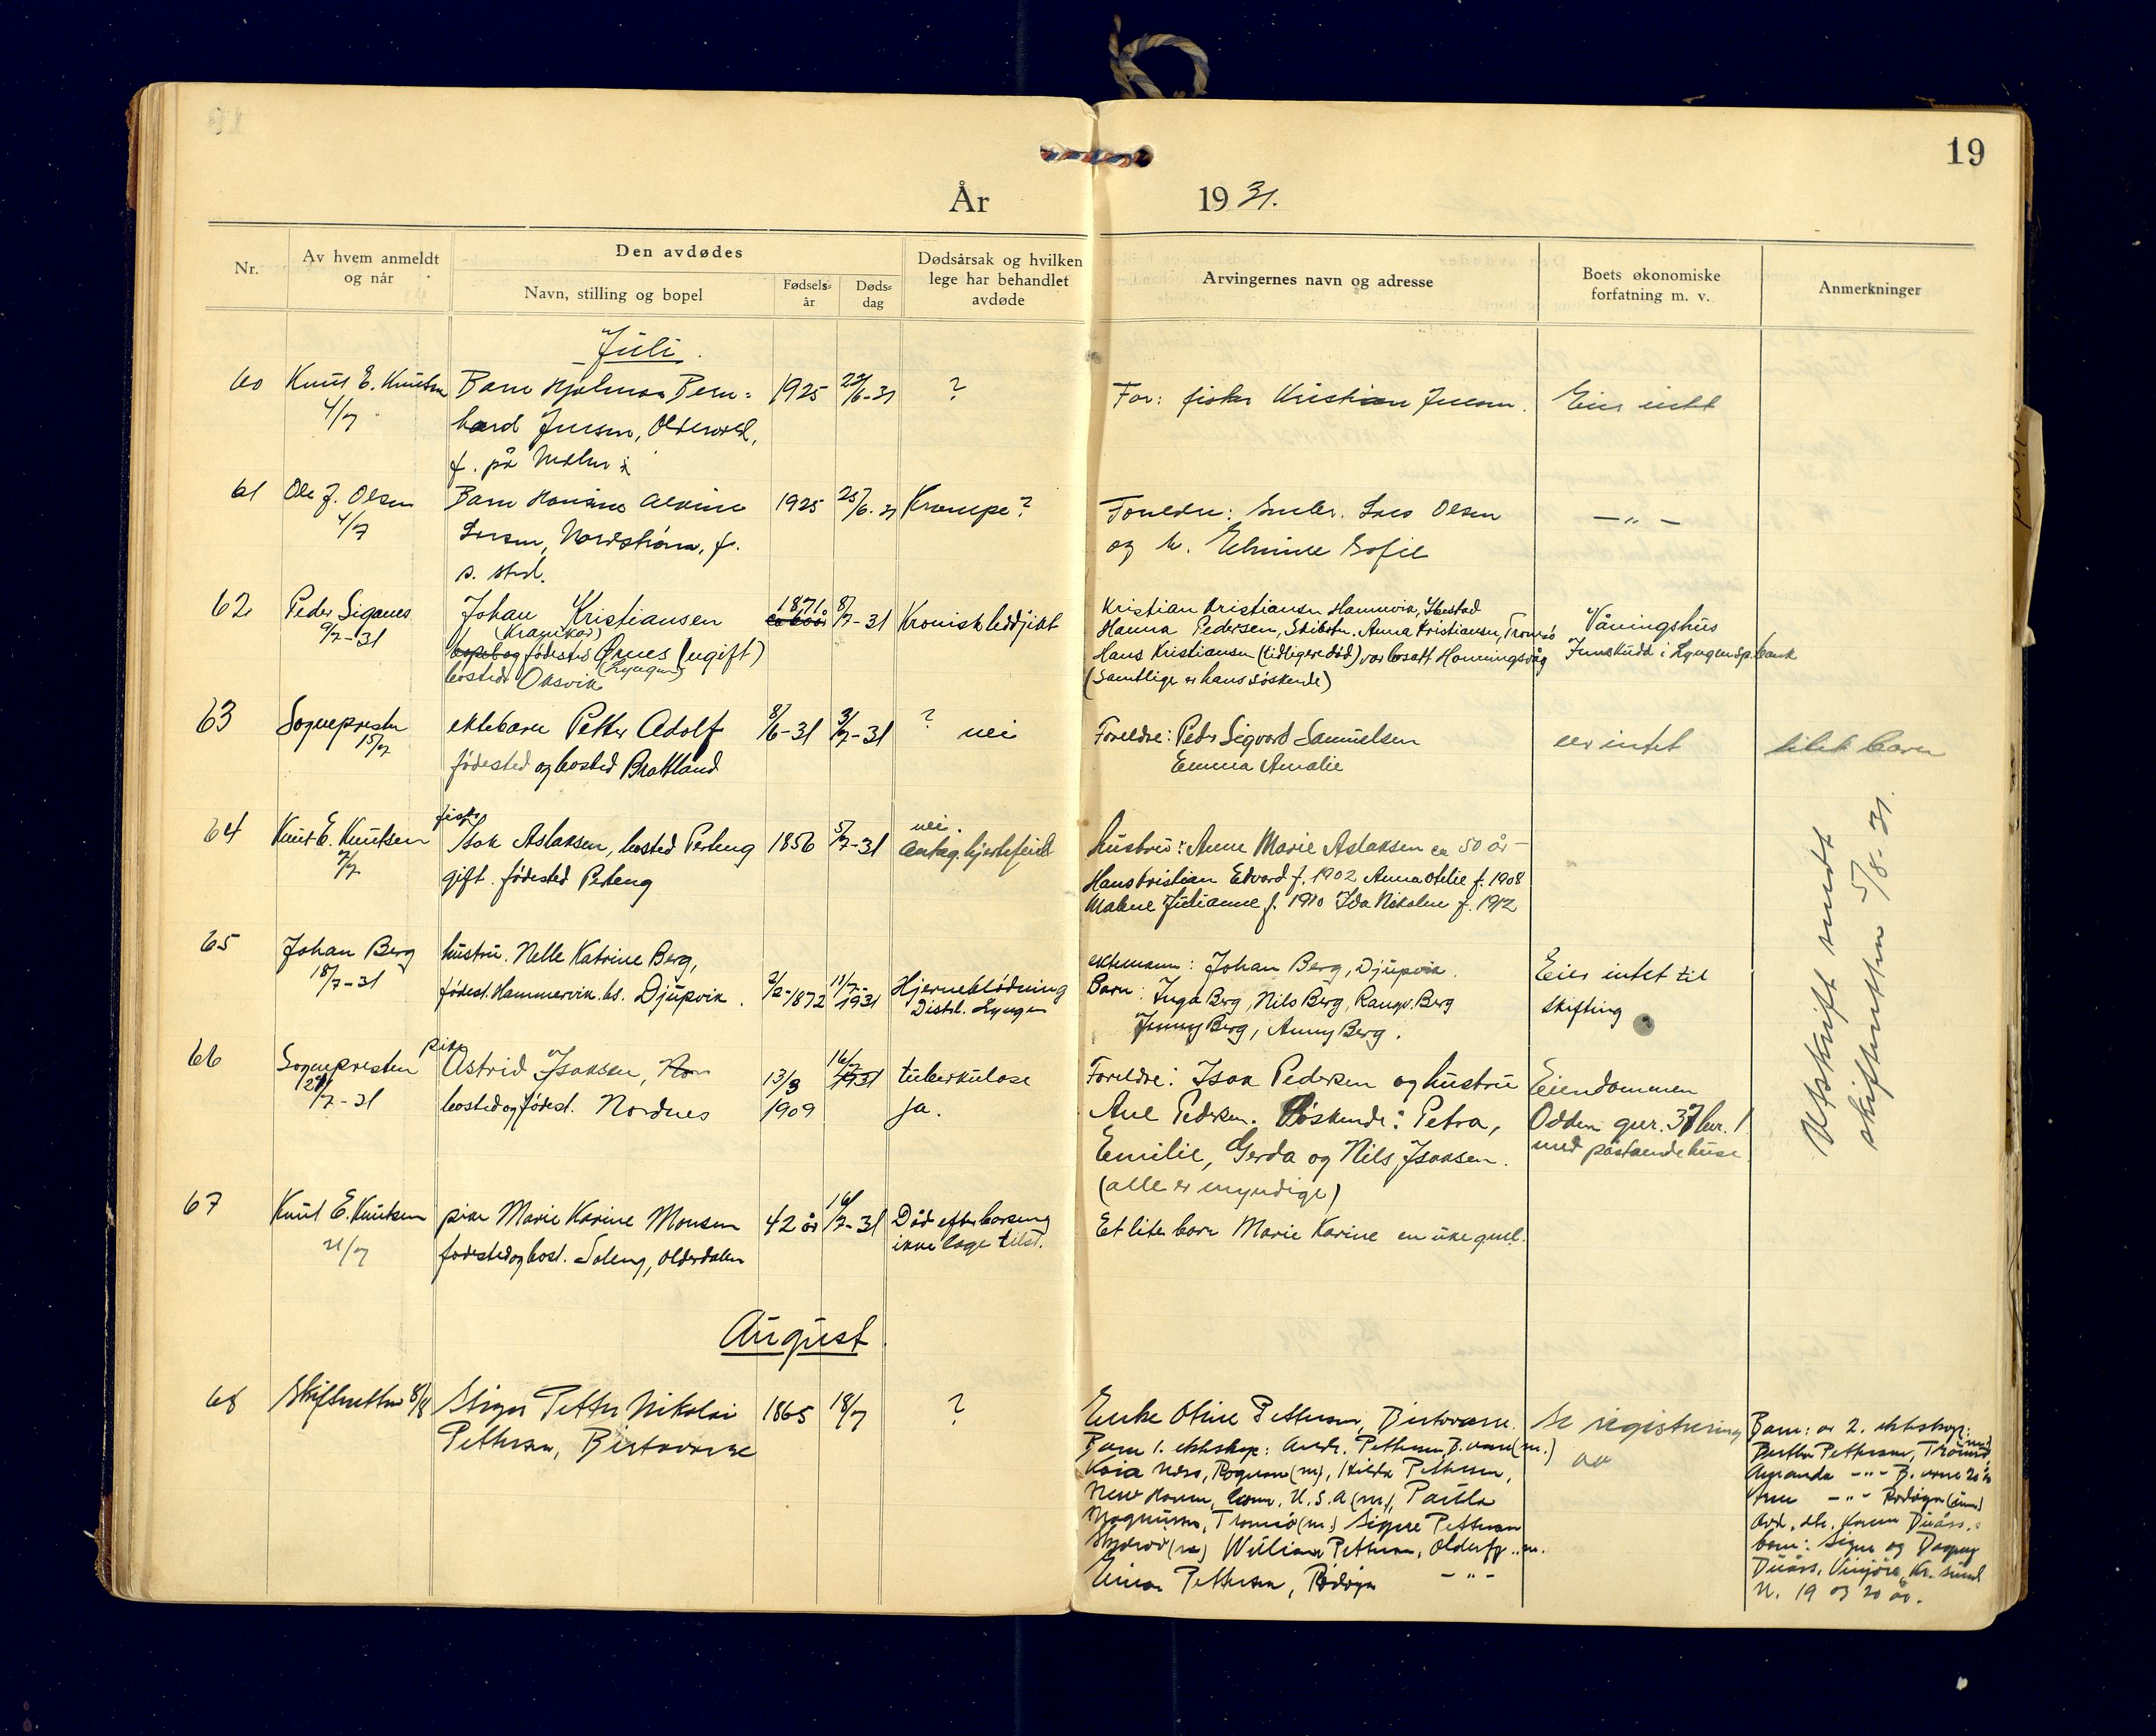 19
År 1931.
Nr.
Av hvem anmeldt og når
Den avdødes
Navn, stilling og bopel
Fødsels- år
Døds- dag
Dødsårsak og hvilken lege har behandlet avdøde
Arvingernes navn og adresse
Boets økonomiske forfatning m. v.
Anmerkninger
Juli.
60 Knut E. Knutsen Barn Hjalmar Bern- 1925 22/6-31 ? For: fisker Kristian Jensen. Eier intet
4/7 hard Jensen, Olderdal,
f. på
61 Ole J. Olsen Barn Hansine Alvine 1925 25/6.31 Krampe? Foreldre: Lars Olsen — " —
4/7 Larsen, f. og h. Sofie
s. sted.
62 Peder Siganes Johan Kristiansen 1871 8/7-31 Kronisk leddjikt Kristian Kristiansen Hamnvik, Ibestad Våningshus
9/7-31 (Krønikar) Hanna Pedersen, Skibotn. Anna Kristiansen, Tromsø Innskudd i Lyngen sp.bank
bopel og fødested Ørnes (ugift) Hans Kristiansen (tidligere død) var bosatt Honningsvåg
(Lyngen)
bosted Oksvik (samtlige er hans søskende)
63 Sognepresten ektebarn Petter Adolf 8/6-31 3/7-31 ? nei Foreldre: Peder Sigvard Samuelsen eier intet litet barn
15/7 fødested og bosted Brattland Emma Amalie
64 Knut E. Knutsen fisker Isak Aslaksen, bosted Perteng 1856 5/7-31 nei. Antag. hjertefeil hustru: Anne Marie Aslaksen ca 50 år -
7/7 gift. fødested Perteng Hans Kristian Edvard f. 1902 Anna Otilie f. 1908
Malene Julianne f. 1910 Ida Nikoline f. 1912
65 Johan Berg hustru. Nelle Katrine Berg, ektemann: Johan Berg, Djupvik. Eier intet til
18/7-31 fødest. Hammervik. bs. Djupvik. 2/2-1872 11/7-1931 Hjerneblødning Barn: Inga Berg, Nils Berg, Rangv. Berg skifting
Distrl. Lyngen Jenny Berg, Anny Berg.
66 Sognepresten pike Astrid Isaksen, 13/3 1909 16/7 1931 tuberkulose Foreldre: Isak Pedersen og hustru Eiendommen
21/7-31 bosted og fødest. Nordnes ja. Ane Pedersen. Søskende: Petra, Odden gnr. 37 bnr. 1
Emilie, Gerda og Nils Isaksen. med påstående huse.
(alle er myndige)
Utskrift sendt
skifteretten 5/8-31.
67 Knut E. Knutsen pike Marie Karine Monsen 42 år 16/7-31 Død efter barseng Et lite barn Marie Karine en uke gml.
21/7 fødested og bost. Soleng, Olderdalen ikke læge tilst.
August.
68 Skifteretten 8/8 Petter Nikolai 1865 18/7 ? Enke Otine Pettersen, Birtavarre. Se registrering
Pettersen, Birtavarre Barn 1. ekteskap: Andr. Pettersen, B.varre (m.)
Kaia Næss, (m), Hilda Pettersen,
New Haven, Conn. U.S.A (m), Paula
Magnussen, Tromsø (m.) Signe Pettersen
(m) William Pettersen, m.
Einar Pettersen, — " —
Barn: av 2. ekteskap:
Bertha Pettersen, Tromsø,
Amanda — " — B. varre 20 år
— " —
barn: Signe og Dagny
Kr. sund
N. 19 og 20 år.